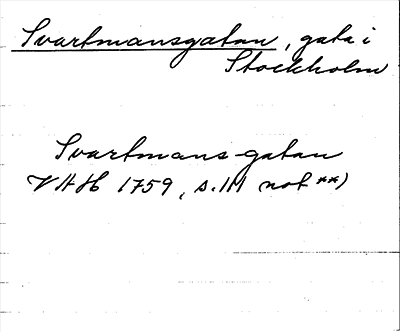 Svartmansgatan, gata i
Stockholm
Svartmans-gatan
VHH 1759, s. 111 not **)